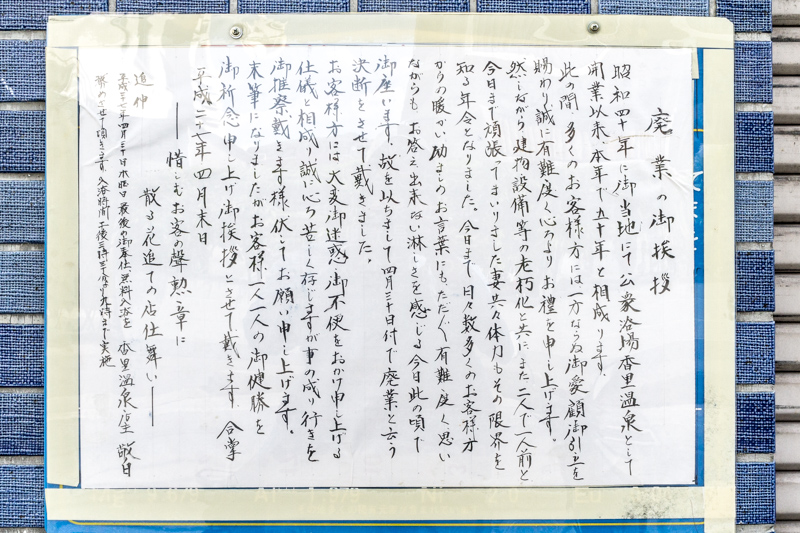 廃業の御挨拶
昭和四十年に御当地にて公衆浴場香里温泉として
開業以来、本年で五十年と相成ります。
此の間、多くのお客様方には一方ならぬ御愛顧御引立を
賜わり誠に有難度く心よりお礼を申し上げます。
然しながら建物設備等の老朽化と共に、また二人で一人前と
今日まで頑張ってまいりました妻共々体力もその限界を
知る年令となりました。今日まで日々数多くのお客様方
からの暖かい励ましのお言葉にもただ〱有難度く思い
ながらも お答え出来ない淋しさを感じる今日此の頃で
御座います。故を以ちまして四月三十日付で廃業と云う
決断をさせて戴きました。
お客様方には大変御迷惑、御不便をおかけ申し上げる
仕儀と相成り誠に心苦しく存じますが事の成り行きを
御推察戴きます様伏してお願い申し上げます。
末筆になりましたがお客様一人一人の御健勝を
御祈念申し上げ御挨拶とさせて戴きます。 合掌
平成二十七年四月末日
── 惜しむお客の聲勲章に
散る花追ての店仕舞い ──
追伸
平成二十七年四月三十日木曜日最後の御奉仕無料入浴を 香里温泉 敬白
務めさせて頂きます。入浴時間 午後三時三十分より九時まで実施